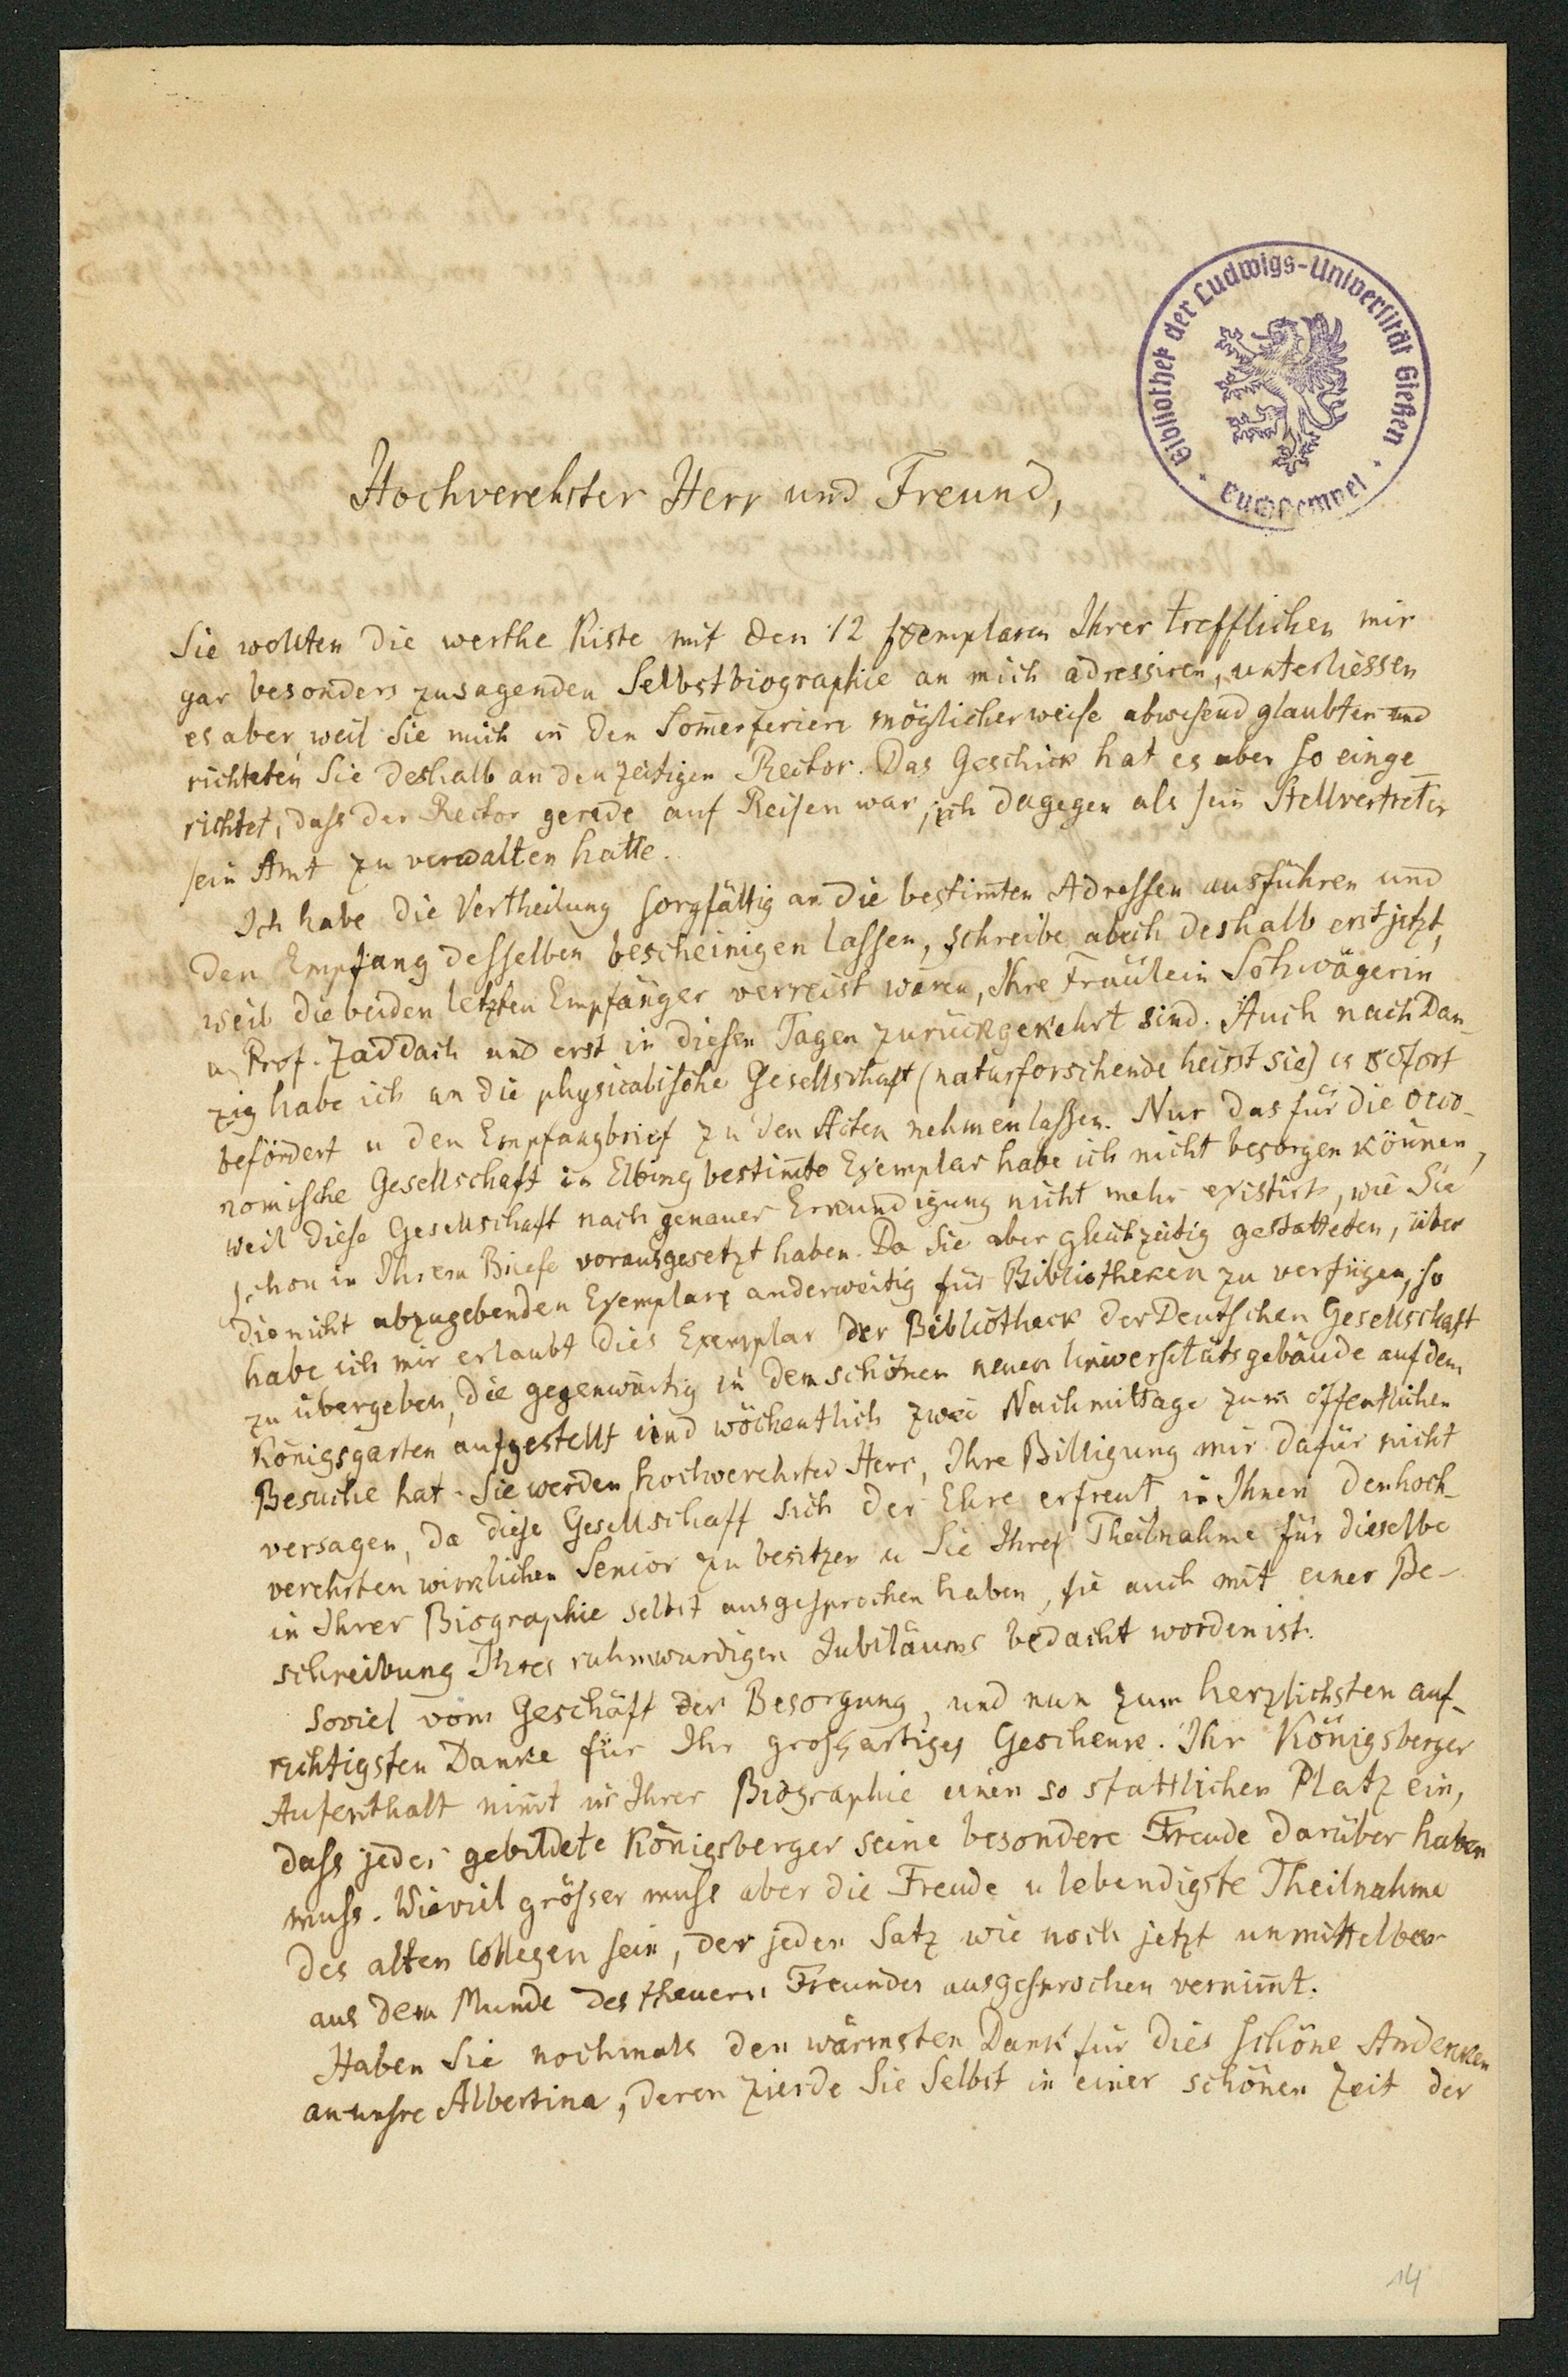 Bibliothek der Ludwigs-Universität Gießen
Hochverehrter Herr und Freund,
Sie wollten die werthe Kiste mit den 12 Exemplaren Ihrer trefflichen mir
gar besonders zusagenden Selbstbiographie an mich adressiren, unterliessen
es aber, weil Sie mich in den Som̄erferien möglicherweise abwesend glaubten und
richteten Sie deshalb an den zeitigen Rector. Das Geschick hat es aber so einge-
richtet, dass der Rector gerade auf Reisen war, ich dagegen als sein Stellvertreter
sein Amt zu verwalten hatte.
Ich habe die Vertheilung sorgfältig an die bestim̄ten Adressen ausführen und
den Empfang desselben bescheinigen lassen, schreibe aber deshalb erst jetzt,
weil die beiden letzten Empfänger verreist waren, Ihre Fräulein Schwägerin
u. Prof. Zaddach und erst in diesen Tagen zurückgekehrt sind. Auch nach Dan-
zig habe ich an die physicalische Gesellschaft (naturforschende heisst sie) es sofort
befördert u den Empfangbrief zu den Acten nehmen lassen. Nur das für die oeco-
nomische Gesellschaft in Elbing bestim̄te Exemplar habe ich nicht besorgen können,
weil diese Gesellschaft nach genauer Erkundigung nicht mehr existirt, wie Sie
schon in Ihrem Briefe vorausgesetzt haben. Da Sie aber gleichzeitig gestatteten, über
die nicht abzugebenden Exemplare anderweitig für Bibliotheken zu verfügen, so
habe ich mir erlaubt dies Exemplar der Bibliotheck der Deutschen Gesellschaft
zu übergeben, die gegenwärtig in dem schönen neuen Universitätsgebäude auf dem
Königsgarten aufgestellt und wöchentlich zwei Nachmittage zum öffentlichen
Besuche hat. Sie werden, hochverehrter Herr, Ihre Billigung mir dafür nicht
versagen, da diese Gesellschaft sich der Ehre erfreut in Ihnen den hoch-
verehrten wirklichen Senior zu besitzen u Sie Ihre Theilnahme für dieselbe
in Ihrer Biographie selbst ausgesprochen haben, sie auch mit einer Be-
schreibung Ihres ruhmwürdigen Jubiläums bedacht worden ist.
Soviel vom Geschäft der Besorgung, und nun zum herzlichsten auf-
richtigsten Danke für Ihr grossartiges Geschenk. Ihr Königsberger
Aufenthalt nim̄t in Ihrer Biographie einen so stattlichen Platz ein,
dass jeder gebildete Königsberger seine besondere Freude darüber haben
muss. Wieviel grösser muss aber die Freude u lebendigste Theilnahme
des alten Collegen sein, der jeden Satz wie noch jetzt unmittelbar
aus dem Munde des theuern Freundes ausgesprochen vernim̄t.
Haben Sie nochmals den wärmsten Dank für dies schöne Andenken
an unsre Albertina, deren Zierde Sie Selbst in einer schönen Zeit der
14